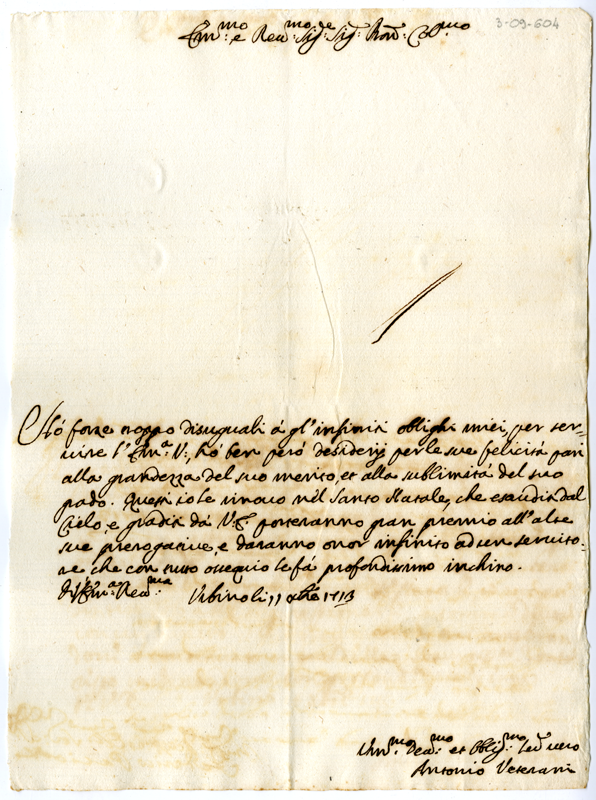 Em:mo e Reu:mo Sig:re Sig: Pron: Col:mo
3-09-604
Hò forze troppo disuguali à gl'infiniti oblighi miei, per ser-
uire l'Em:a V:, hò ben però desiderij per le sue felicità pari
alla grandezza del suo merito, et alla sublimità del suo
grado. Questi io le inuio nel Santo Natale, che esauditi dal
Cielo, e graditi dà V.E. porteranno gran premio all'alte
sue prerogatiue, e daranno onor infinito ad un seruito:
re che con tutto ossequio le fà profondissimo inchino.
Di V. Em:a Reu:ma Urbino li 11 Xbre 1713
Um:mo Deu:mo et Oblig:mo Seru vero
Antonio Veterani